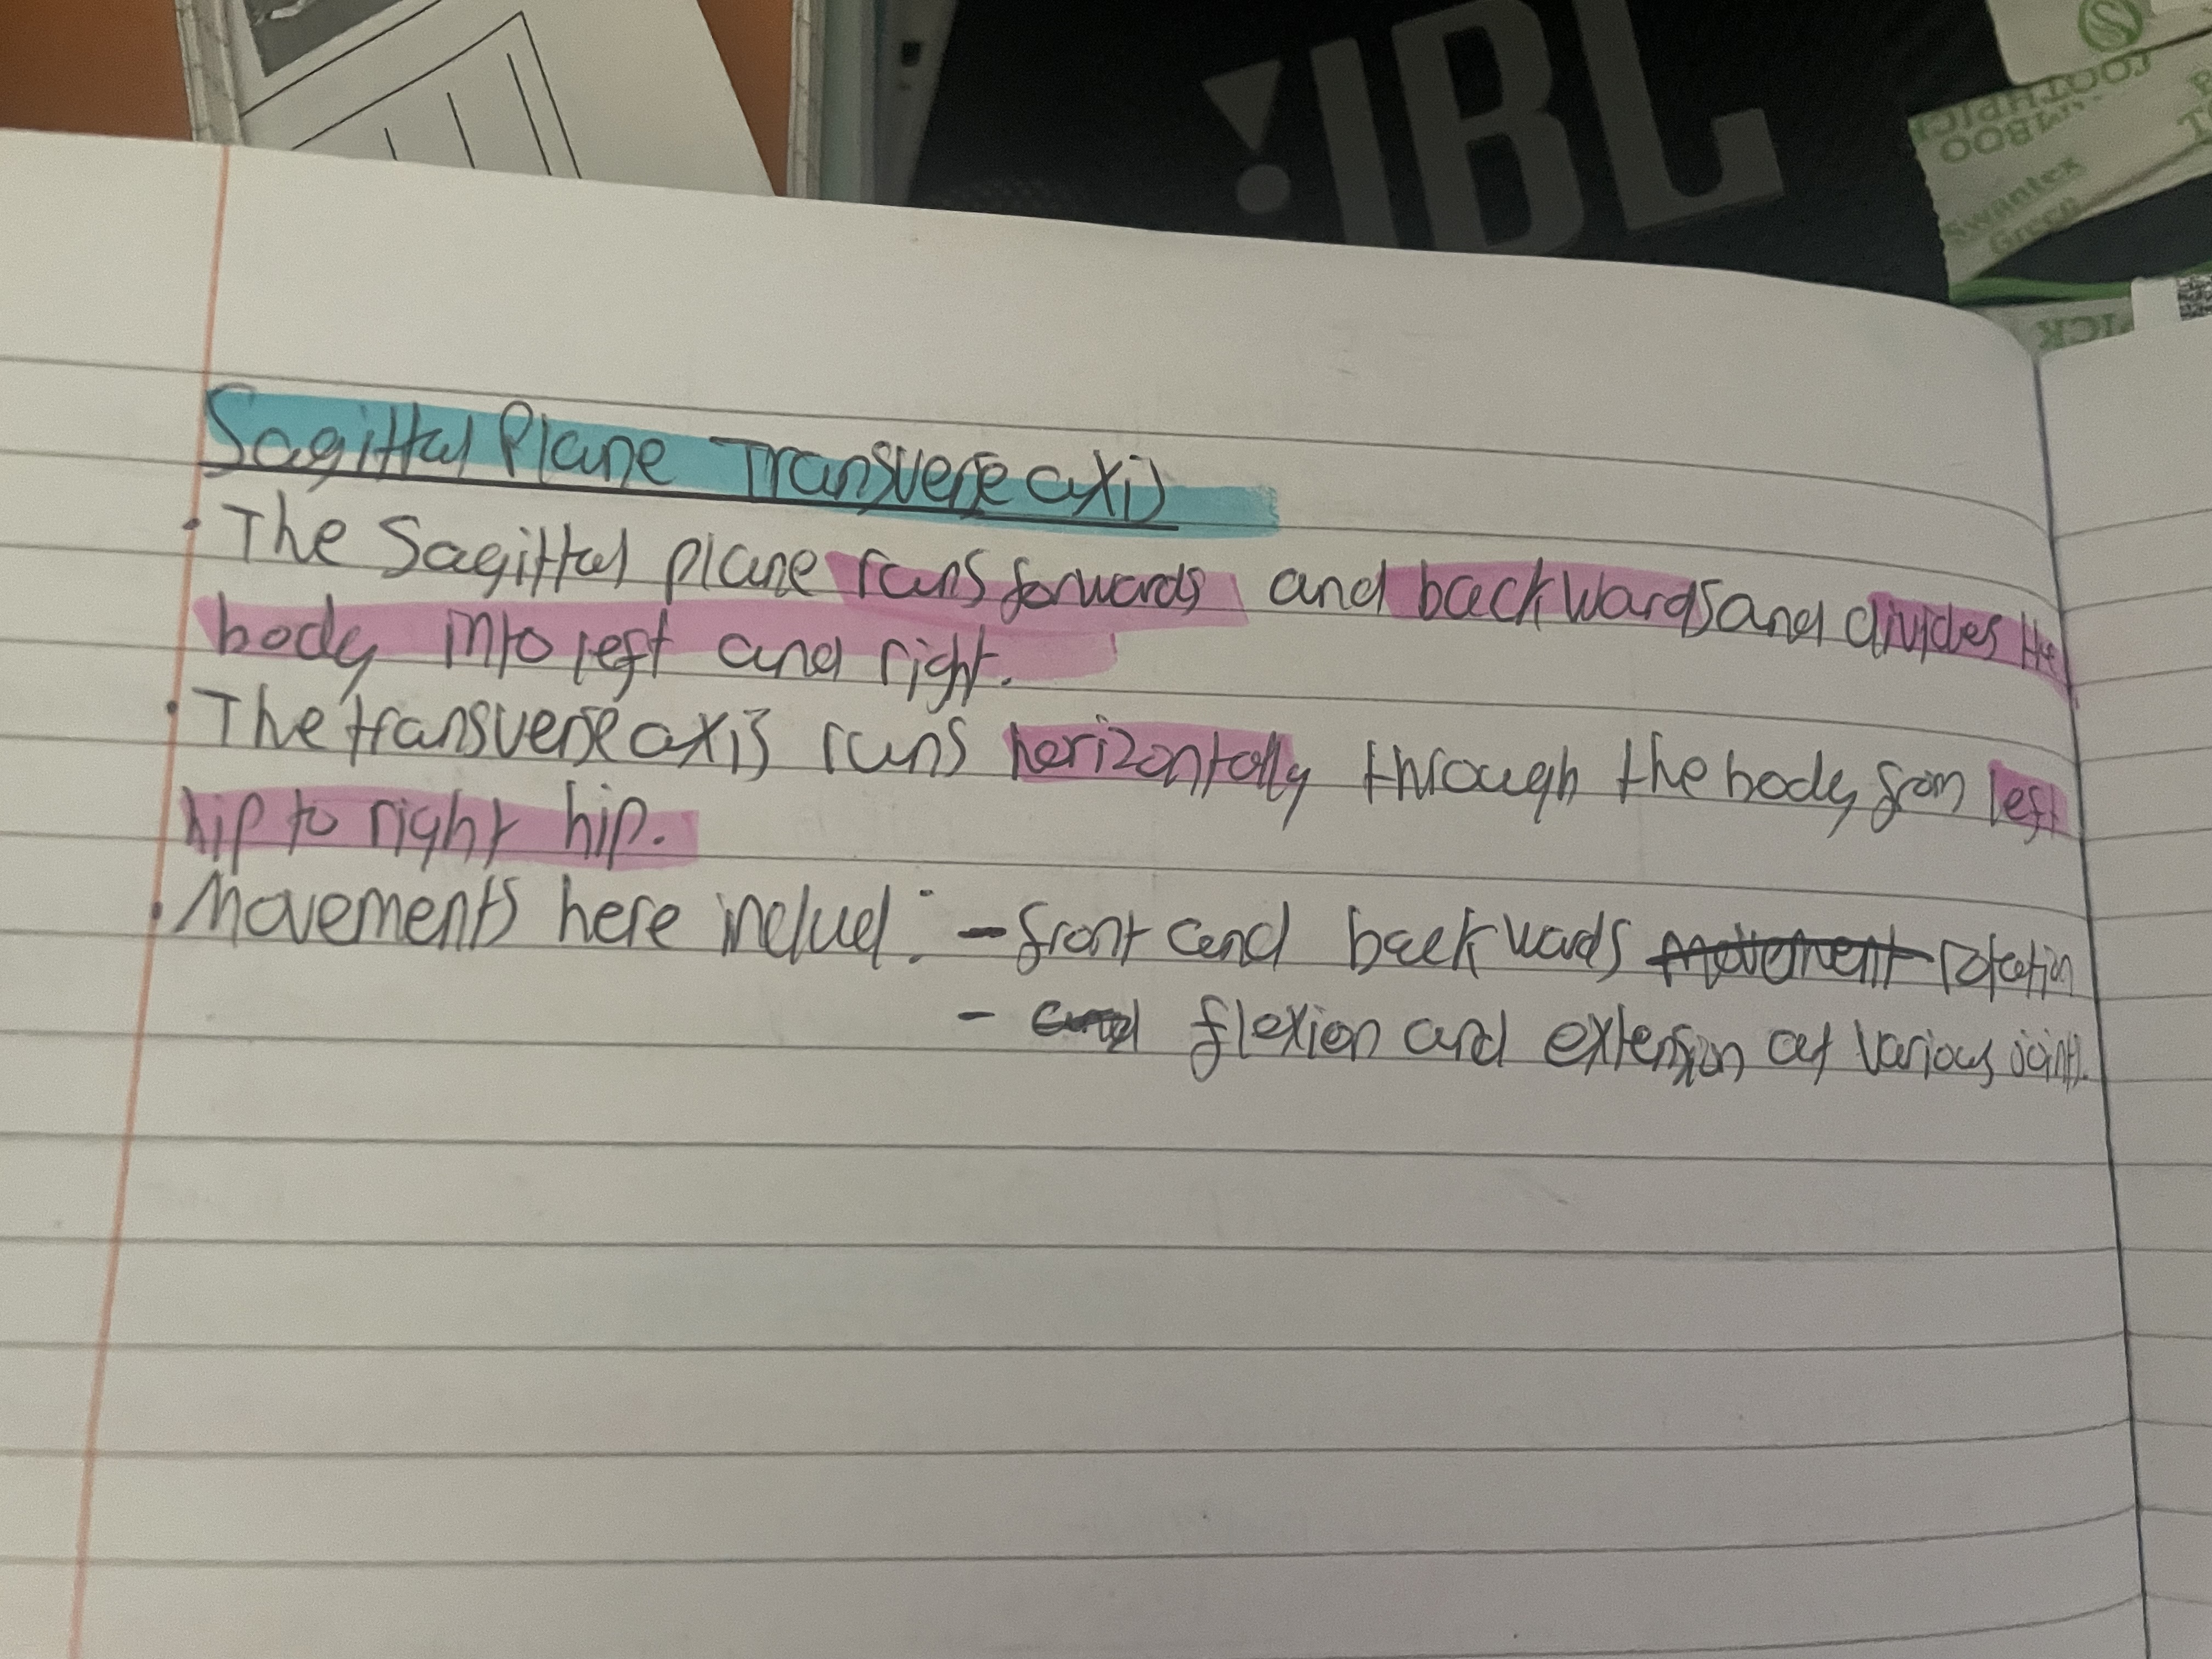 JBL
TOOTHPICK
BAMBOO
Swantex
Green
ICK
Sagittal Plane Transverse axis
• The Sagittal plane runs forwards and backwards and divides the
body into left and right.
• The transverse axis runs horizontally through the body from left
hip to right hip.
• Movements here includ: - front and backwards movement rotation
- and flexion and extension at various joints.